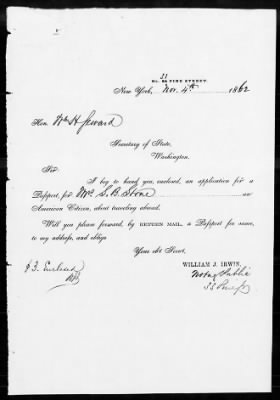 53
No. 53 PINE STREET.
New York, Nov. 4th 1862
Hon. Wm H. Seward
Secretary of State,
Washington.
Sir
I beg to hand you, enclosed, an application for a
Passport, for S. B. Stone an
American Citizen, about traveling abroad.
Will you please forward, by RETURN MAIL, a Passport for same,
to my address, and oblige
Your Obt Servt,
WILLIAM J. IRWIN,
Notary Public
$3. Enclosed